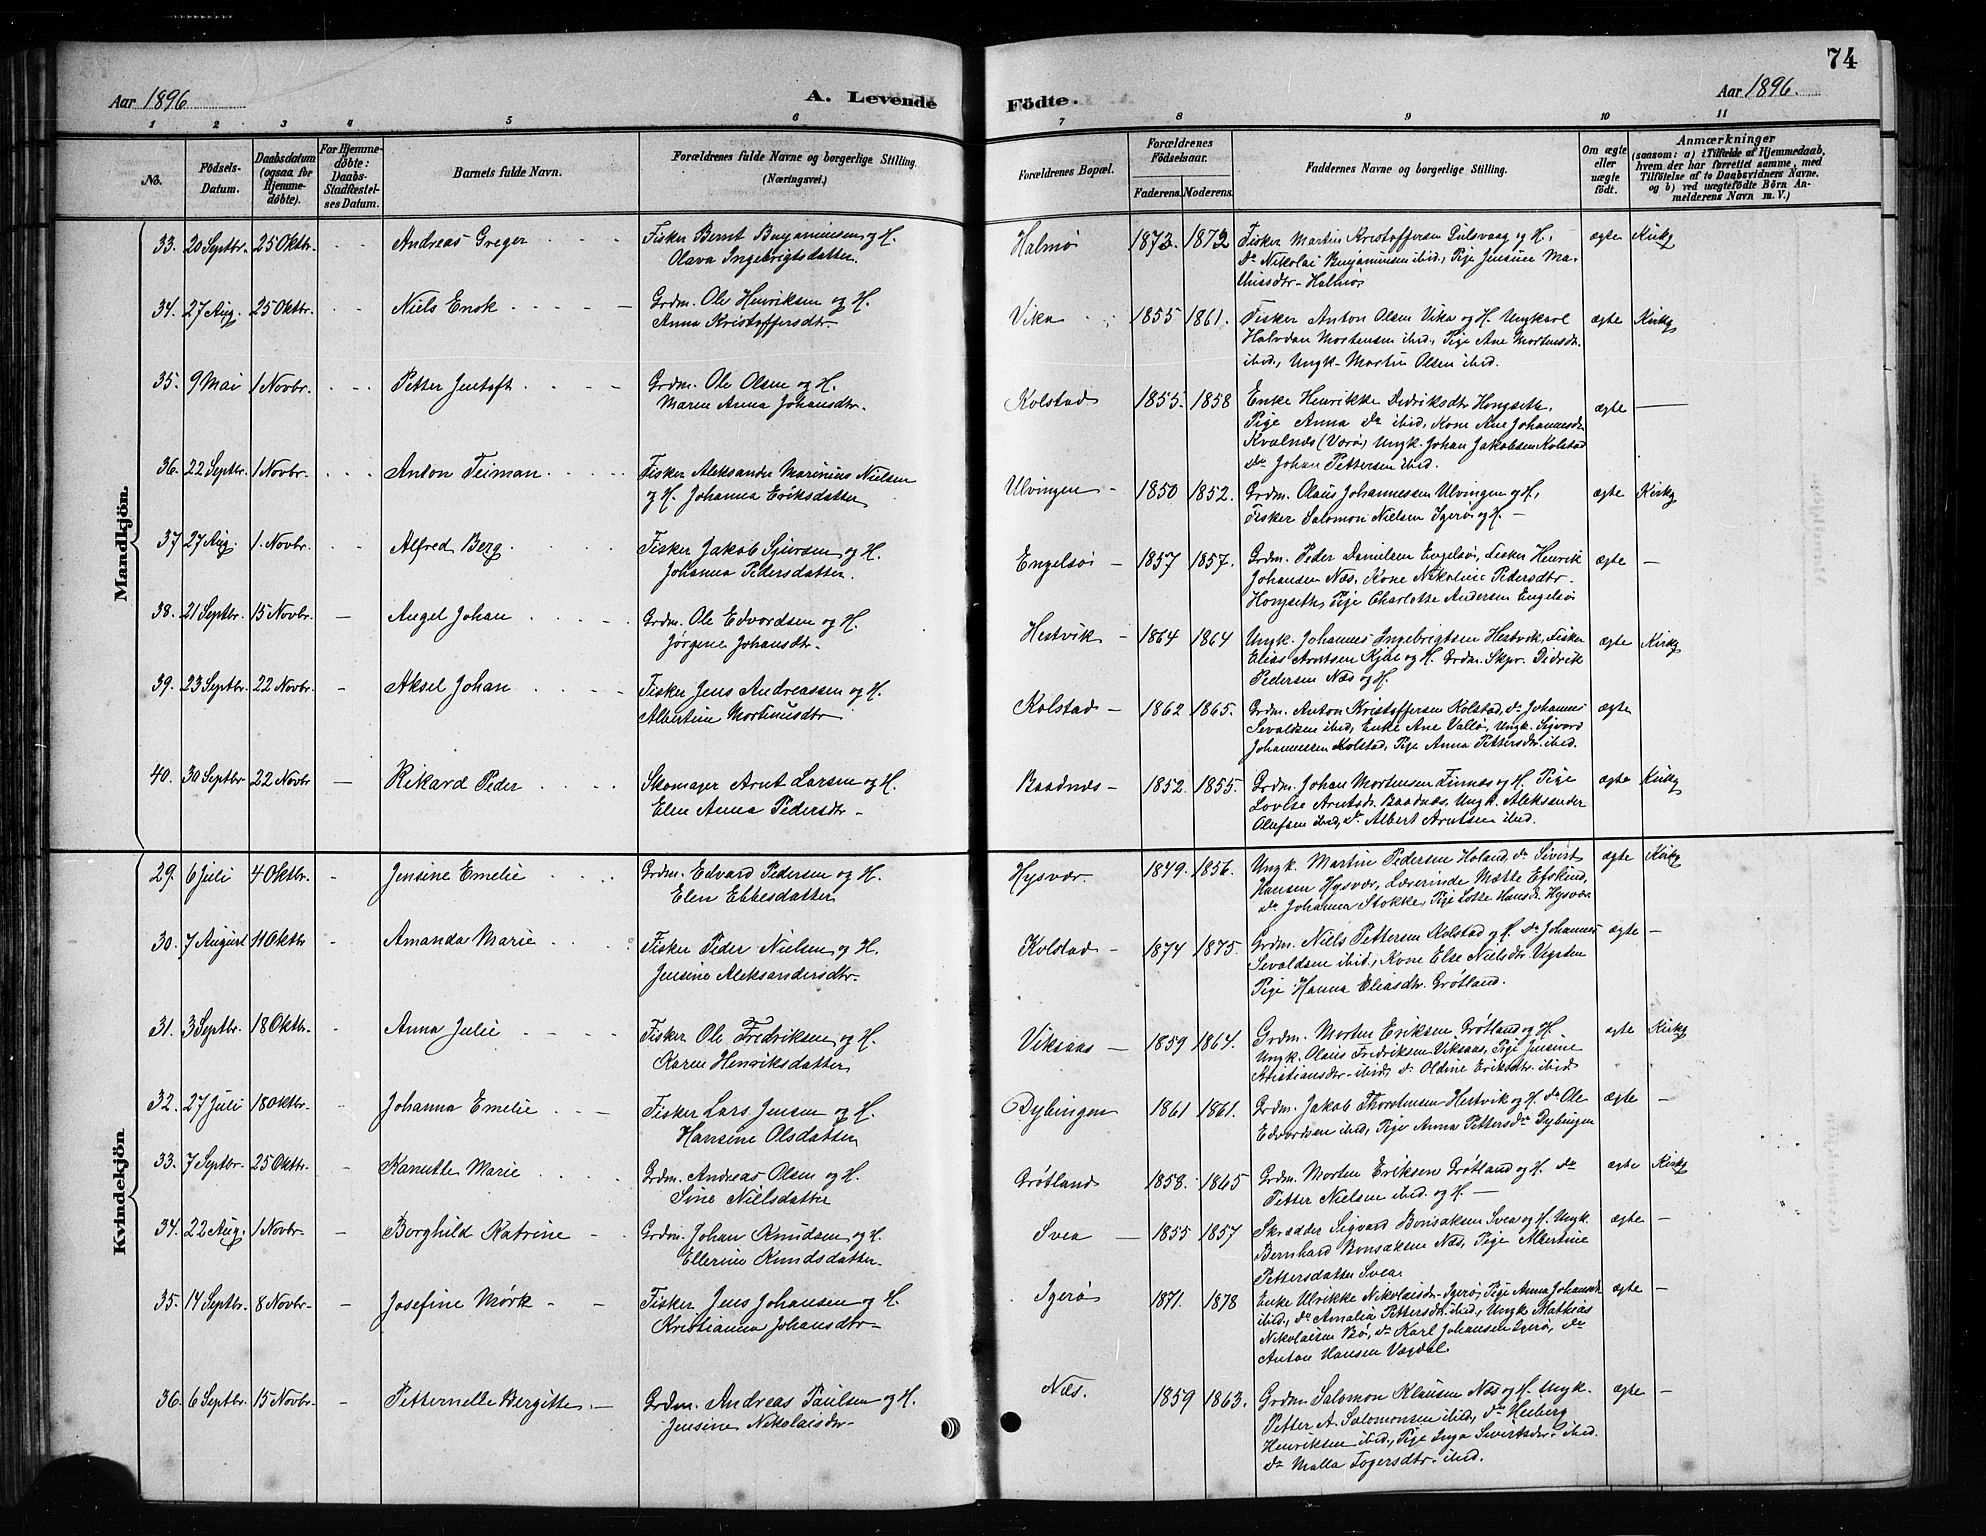 74
Aar 1896
A. Levende
Födte.
Aar 1896.
1 2 3 4 5 6 7 8 9 10 11
No.
Födsels-
Datum.
Daabsdatum
(ogsaa for
Hjemme-
döbte).
For Hjemme-
döbte:
Daabs-
Stadfæstel-
ses Datum.
Barnets fulde Navn.
Forældrenes fulde Navne og borgerlige Stilling.
(Næringsvei.)
Forældrenes Bopæl.
Forældrenes
Födselsaar.
Faderens. Moderens.
Faddernes Navne og borgerlige Stilling.
Om ægte
eller
uægte
födt.
Anmærkninger
(saasom: a) i Tilfælde af Hjemmedaab,
hvem der har forrettet samme, med
Tilföielse af to Daabsvidners Navne.
og b) ved uægtefödte Börn An-
melderens Navn m. V.)
Mandkjön.
33. 20 Septbr. 25 Oktbr. Andreas Greger Fisker Bernt Benjaminsen og H.
Olava Ingebrigtsdatter.
Halmø 1873. 1872 Fisker Martin Kristoffersen Gulsvaag og H.
do Nikolai Benjaminsen ibid., Pige Jensine Ma-
thiasdtr Halmø
ægte Kirkg
34. 27 Aug. 25 Oktbr. Niels Enok Grdm. Ole Henriksen og H.
Anna Kristoffersdtr
Vika 1855 1861. Fisker Anton Olsen Vika og H. Ungkarl
Halvdan Mortensen ibid., Pige Ane Mortensdtr.
ibid., Ungk. Martin Olsen ibid.
ægte Kirkg
35. 9 Mai 1 Novbr. Petter Jentoft Grdm. Ole Olsen og H.
Maren Anna Johansdtr.
Kolstad 1855. 1858 Enke Henrikke Didriksdtr Hongseth,
Pige Anna do ibid, Kone Ane Johannesdtr
Kvalnæs (Værø) Ungk. Johan Jakobsen Kolstad
do Johan Pettersen ibid.
ægte —
36. 22 Septbr. 1 Novbr. Anton Teiman Fisker Aleksander Marinius Nielsen
og H. Johanna Eriksdatter
Ulvingen 1850 1852. Grdm. Olaus Johannessen Ulvingen og H.
Fisker Salomon Nielsen Igerø og H.
ægte Kirkg
37 27 Aug. 1. Novbr. Alfred Berg. Fisker Jakob Sjursen og H.
Johanna Pedersdatter.
Engelsøi 1857 1857. Grdm. Peder Danielsen Engelsøi, Fisker Henrik
Johansen Næs, Kone Nikoline Pedersdtr
Hongseth, Pige Charlotte Andersen Engelsøi
ægte —
38. 21 Septbr. 15 Novbr. — Angel Johan Grdm. Ole Edvardsen og H.
Jørgine Johansdtr.
Hestvik 1864 1864 Ungk. Johannes Ingebrigtsen Hestvik, Fisker
Elias Arntsen Kjul og H. Grdm. Skpr. Didrik
Pedersen Næs og H.
ægte Kirkg
39. 23 Septbr. 22 Novbr. - Aksel Johan Fisker Jens Andreassen og H.
Albertine Mortinusdtr
Kolstad 1862 1865. Grdm. Anton Kristoffersen Kolstad, do Johannes
Sevaldsen ibid, Enke Ane Vallø, Ungk. Sigvard
Johannessen Kolstad, Pige Anna Pettersdtr. ibid.
ægte
40. 30 Septbr 22 Novbr — Rikard Peder Skomager Arnt Larsen og H.
Elen Anna Pedersdtr
Baadnæs 1852. 1855. Grdm. Johan Mortensen Finnæs og H. Pige
Lovise Arntsdr. Baadnæs, Ungk. Aleksander
Olufsen ibid, do Albert Arntsen ibid.
ægte Kirkg
Kvindekjön
29. 6 Juli 4 Oktbr. - Jensine Emelie Grdm. Edvard Pedersen og H.
Elen Ebbesdatter
Hysvær. 1849. 1856. Ungk. Martin Pedersen Holand, do Sivert
Hansen Hysvær, Lærerinde Mætte Efskind,
do Johanna Stokke, Pige Lotte Hansdr. Hysvær
ægte Kirkg
30. 7 August 11 Oktbr - Amanda Marie Fisker Peder Nielsen og H.
Jensine Aleksandersdtr.
Kolstad 1874 1875. Grdm. Niels Pettersen Kolstad og H. do Johannes
Sevaldsen ibid., Kone Else Nielsdtr Vegsten
Pige Hanna Eliasdtr. Grøtland.
ægte —
31. 3 Septbr. 18 Oktbr. - Anna Julie Fisker Ole Fredriksen og H.
Karen Henriksdatter
Viksaas 1859 1864. Grdm. Morten Eriksen Grøtland og H.
Ungk. Olaus Fredriksen Viksaas, Pige Jensine
Kristiansdtr. ibid, do Oldine Eriksdtr. ibid
ægte Kirkg
32. 27 Juli 18 Oktbr. - Johanna Emelie Fisker Lars Jensen og H.
Hansine Olsdatter
Dybingen 1861 1861. Grdm. Jakob Thorstensen Hestvik og H. do Ole
Edvardsen ibid, Pige Anna Pettersdr Dybingen
ægte —
33. 7 Septbr. 25 Oktbr. - Kanutte Marie Grdm. Andreas Olsen og H.
Sine Nielsdatter
Grøtland 1858. 1865 Grdm. Morten Eriksen Grøtland og H. do
Petter Nielsen ibid. og H.
ægte Kirkg
34. 22 Aug. 1 Novbr. - Borghild Katrine Grdm. Johan Knudsen og H.
Ellerine Knudsdatter.
Svea 1855 1857 Skrædder Sigvard Bonsaksen Svea og H. Ungk.
Bernhard Bonsaksen Næs, Pige Albertine
Pettersdatter Svea.
ægte —
35. 14 Septbr. 8 Novbr. - Josefine Mørk Fisker Jens Johansen og H.
Kristianna Johansdtr.
Igerø 1871. 1878 Enke Ulrikke Nikolaisdr. Igerø, Pige Anna Johansdr
ibid., do Amalia Pettersdtr. ibid., Ungk. Mathias
Nikolaisen Bø, do Karl Johansen Igerø, do
Anton Hansen Vægdal.
ægte —
36. 6 Septbr. 15 Novbr. - Petternelle Bergitte Grdm. Andreas Paulsen og H.
Jensine Nikolaisdr.
Næs. 1859 1863. Grdm. Salomon Klausen Næs og H. Ungk.
Petter A. Salomonsen ibid., do Heiberg
Henriksen ibid., Pige Inga Sivertsdtr. ibid.
do Malla Fogersdtr. ibid.
ægte —